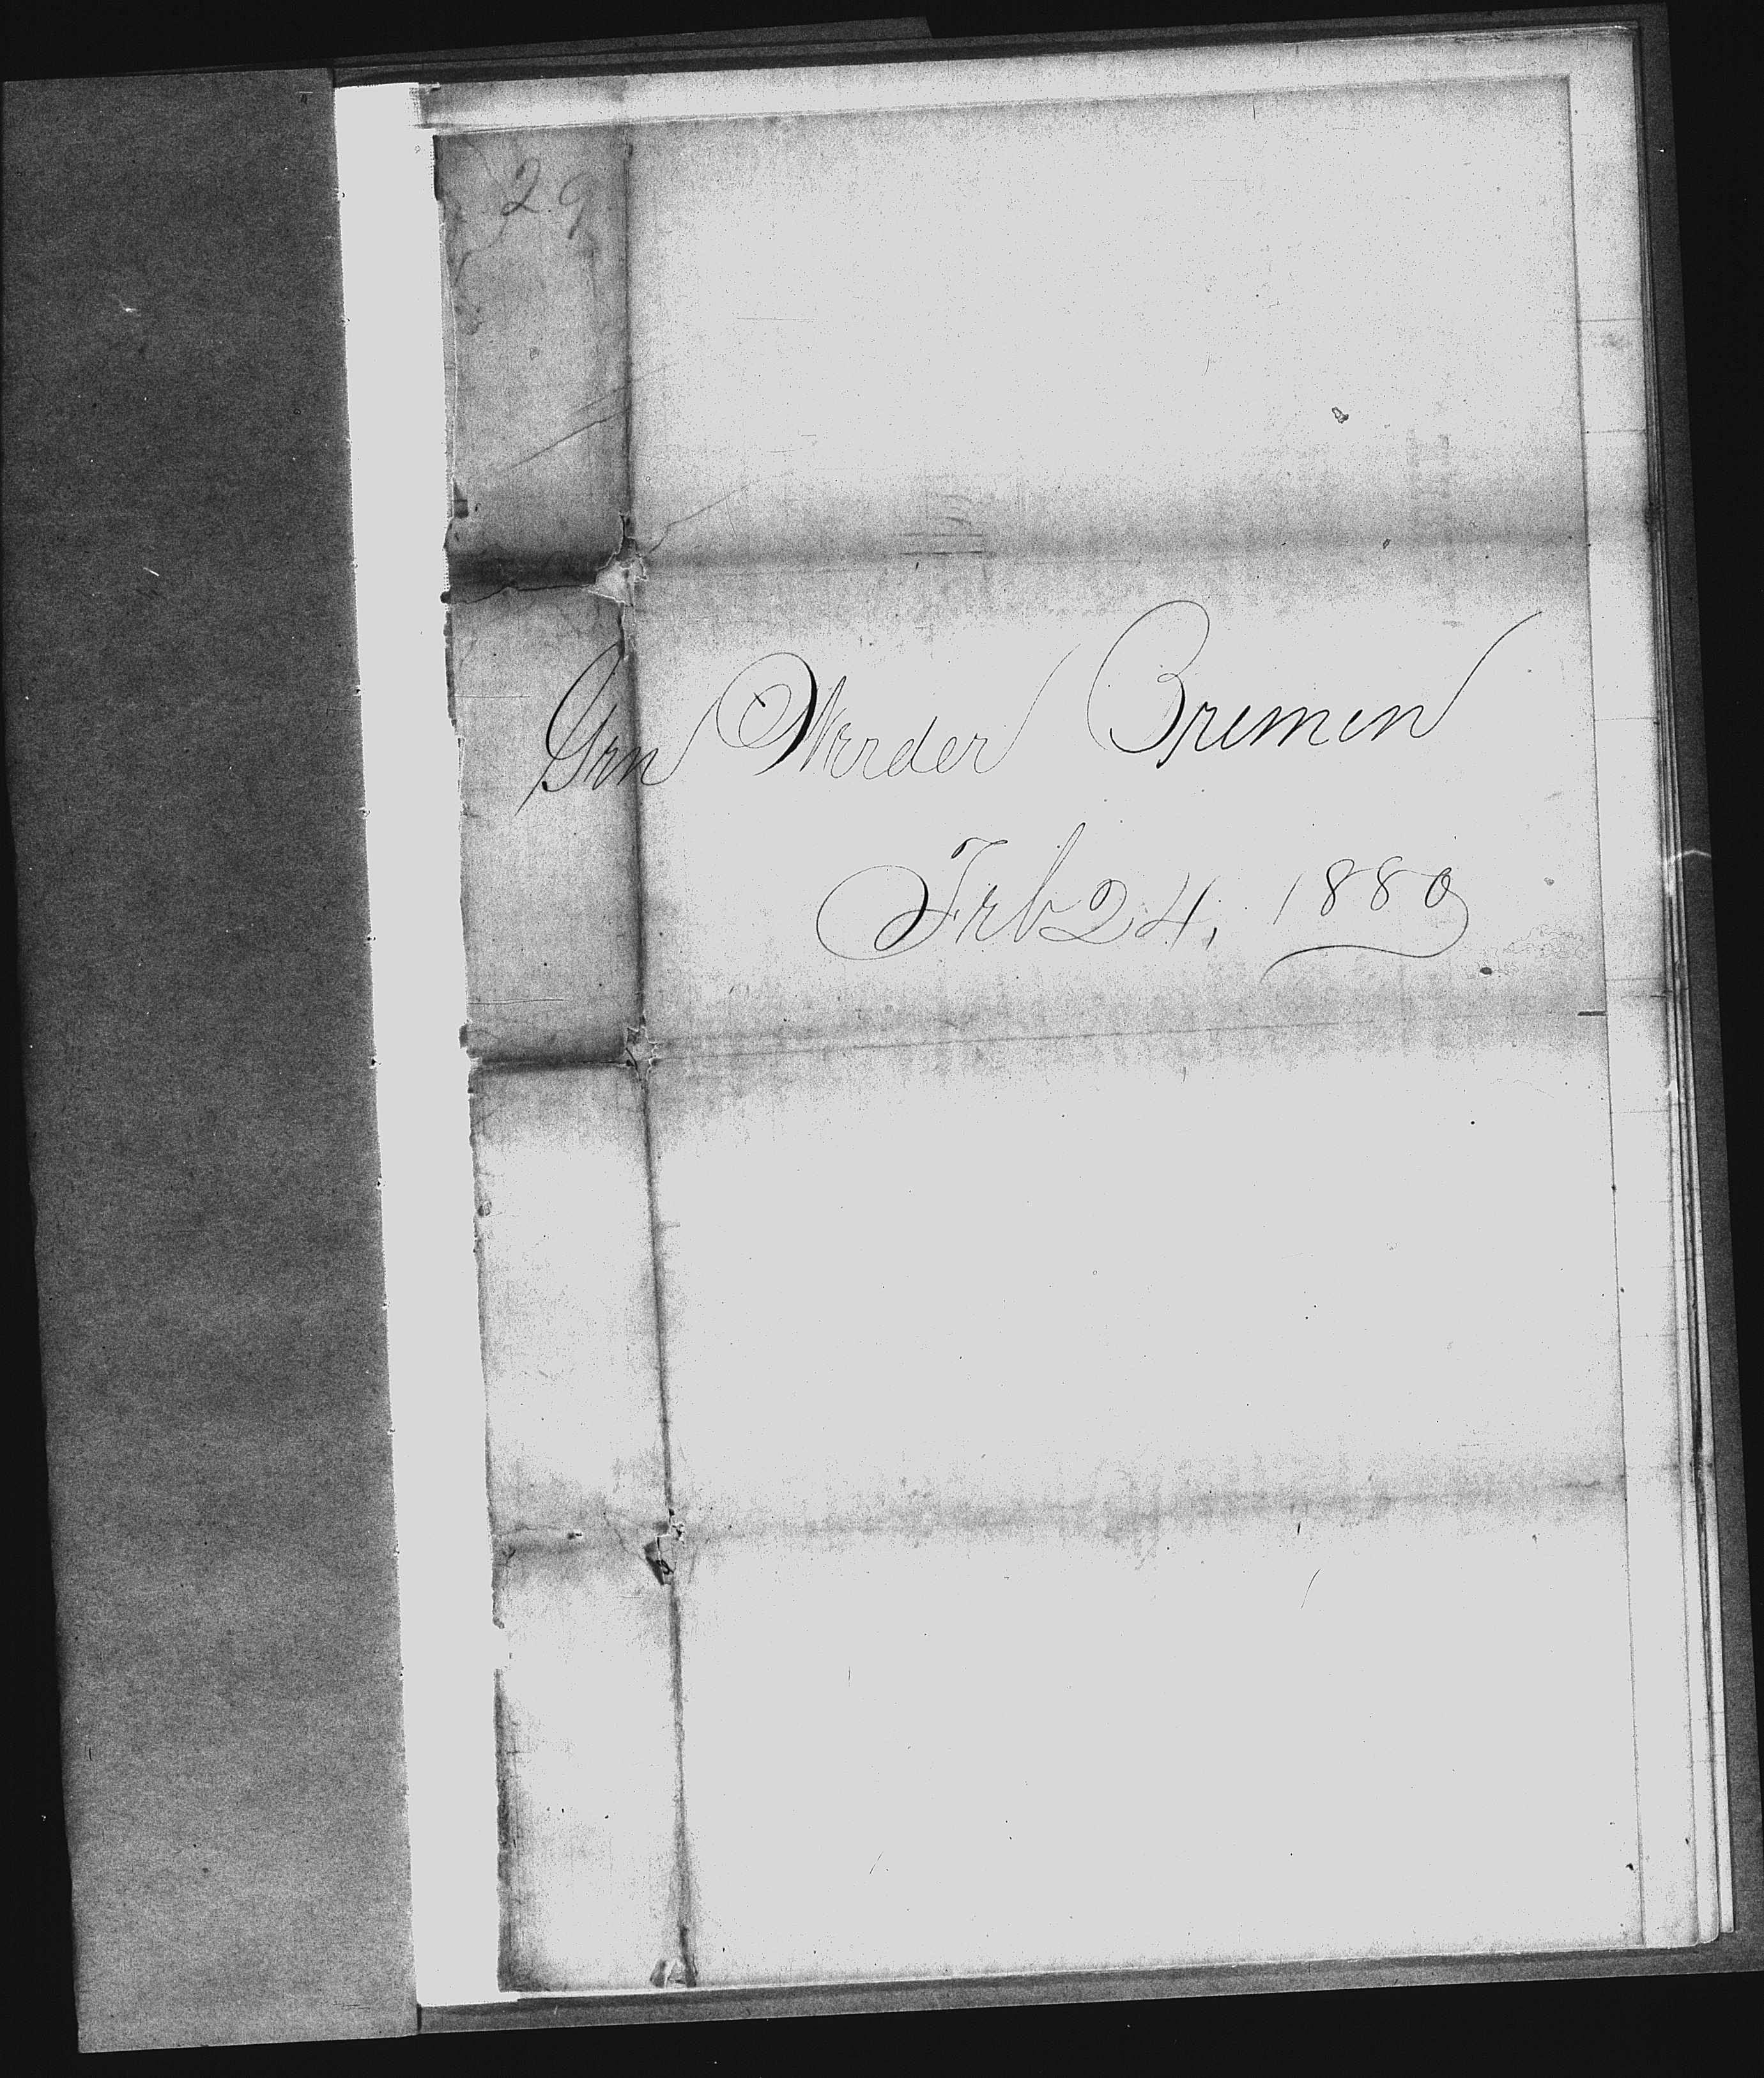 29
Gen Werder Bremen
Feb 24, 1880